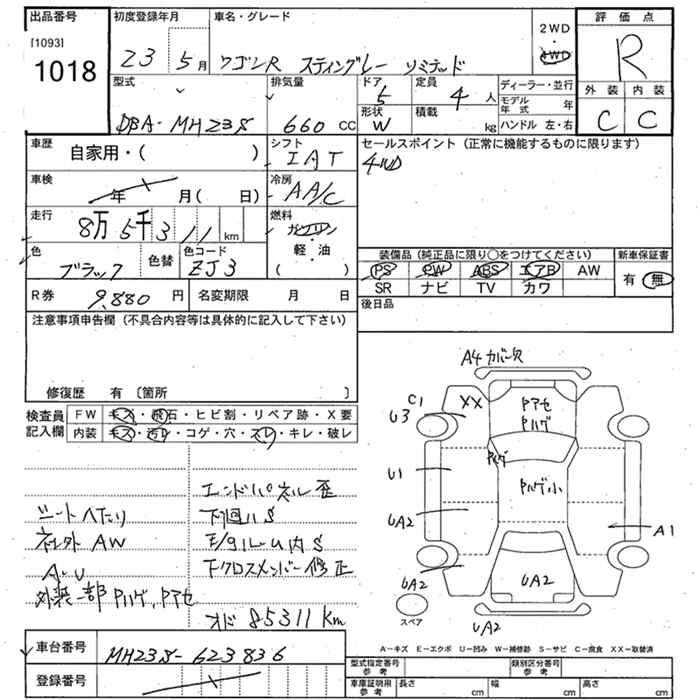 出品番号 初度登録年月 車名・グレード 2WD・4WD 評価点
[1093] 1018 23 5月 ワゴンR スティングレー リミテッド R
外装 内装
C C
型式 排気量 ドア 5 定員 4人 ディーラー・並行
DBA-MH23S 660 CC 形状 W 積載 kg モデル年式 年
ハンドル 左・右
車歴 自家用・( ) シフト IAT セールスポイント (正常に機能するものに限ります)
4WD
車検 年 月( 日) 冷房 AA/C
走行 8万5千311 km 燃料 ガソリン・軽・油 ( )
色 ブラック 色替 色コード ZJ3
装備品 (純正品に限り○をつけてください) 新車保証書
PS PW ABS エアB AW 有・無
SR ナビ TV カワ
R券 9,880円 名変期限 月 日 後日品
注意事項申告欄 (不具合内容等は具体的に記入して下さい)
修復歴 有 〔箇所 〕
検査員記入欄 FW キズ・飛石・ヒビ割・リペア跡・X要
内装 キズ・汚レ・コゲ・穴・スレ・キレ・破レ
エンドパネル歪
シートヘタリ 下回りS
社外AW モタルーム内S
A・U 下クロスメンバー修正
外装一部Pハゲ、Pアセ
オド 85311 km
車台番号 MH23S-623836
登録番号
A4 カバー欠
C1
U3
XX
Pアセ
Pハゲ
Pハゲ
U1
Pハゲ小
UA2
A1
UA2
UA2
スペア
UA2
A-キズ E-エクボ U-凹み W-補修跡 S-サビ C-腐食 XX-取替済
型式指定番号 参考 類別区分番号 参考
車庫証明用 参考 長さ cm 幅 cm 高さ cm